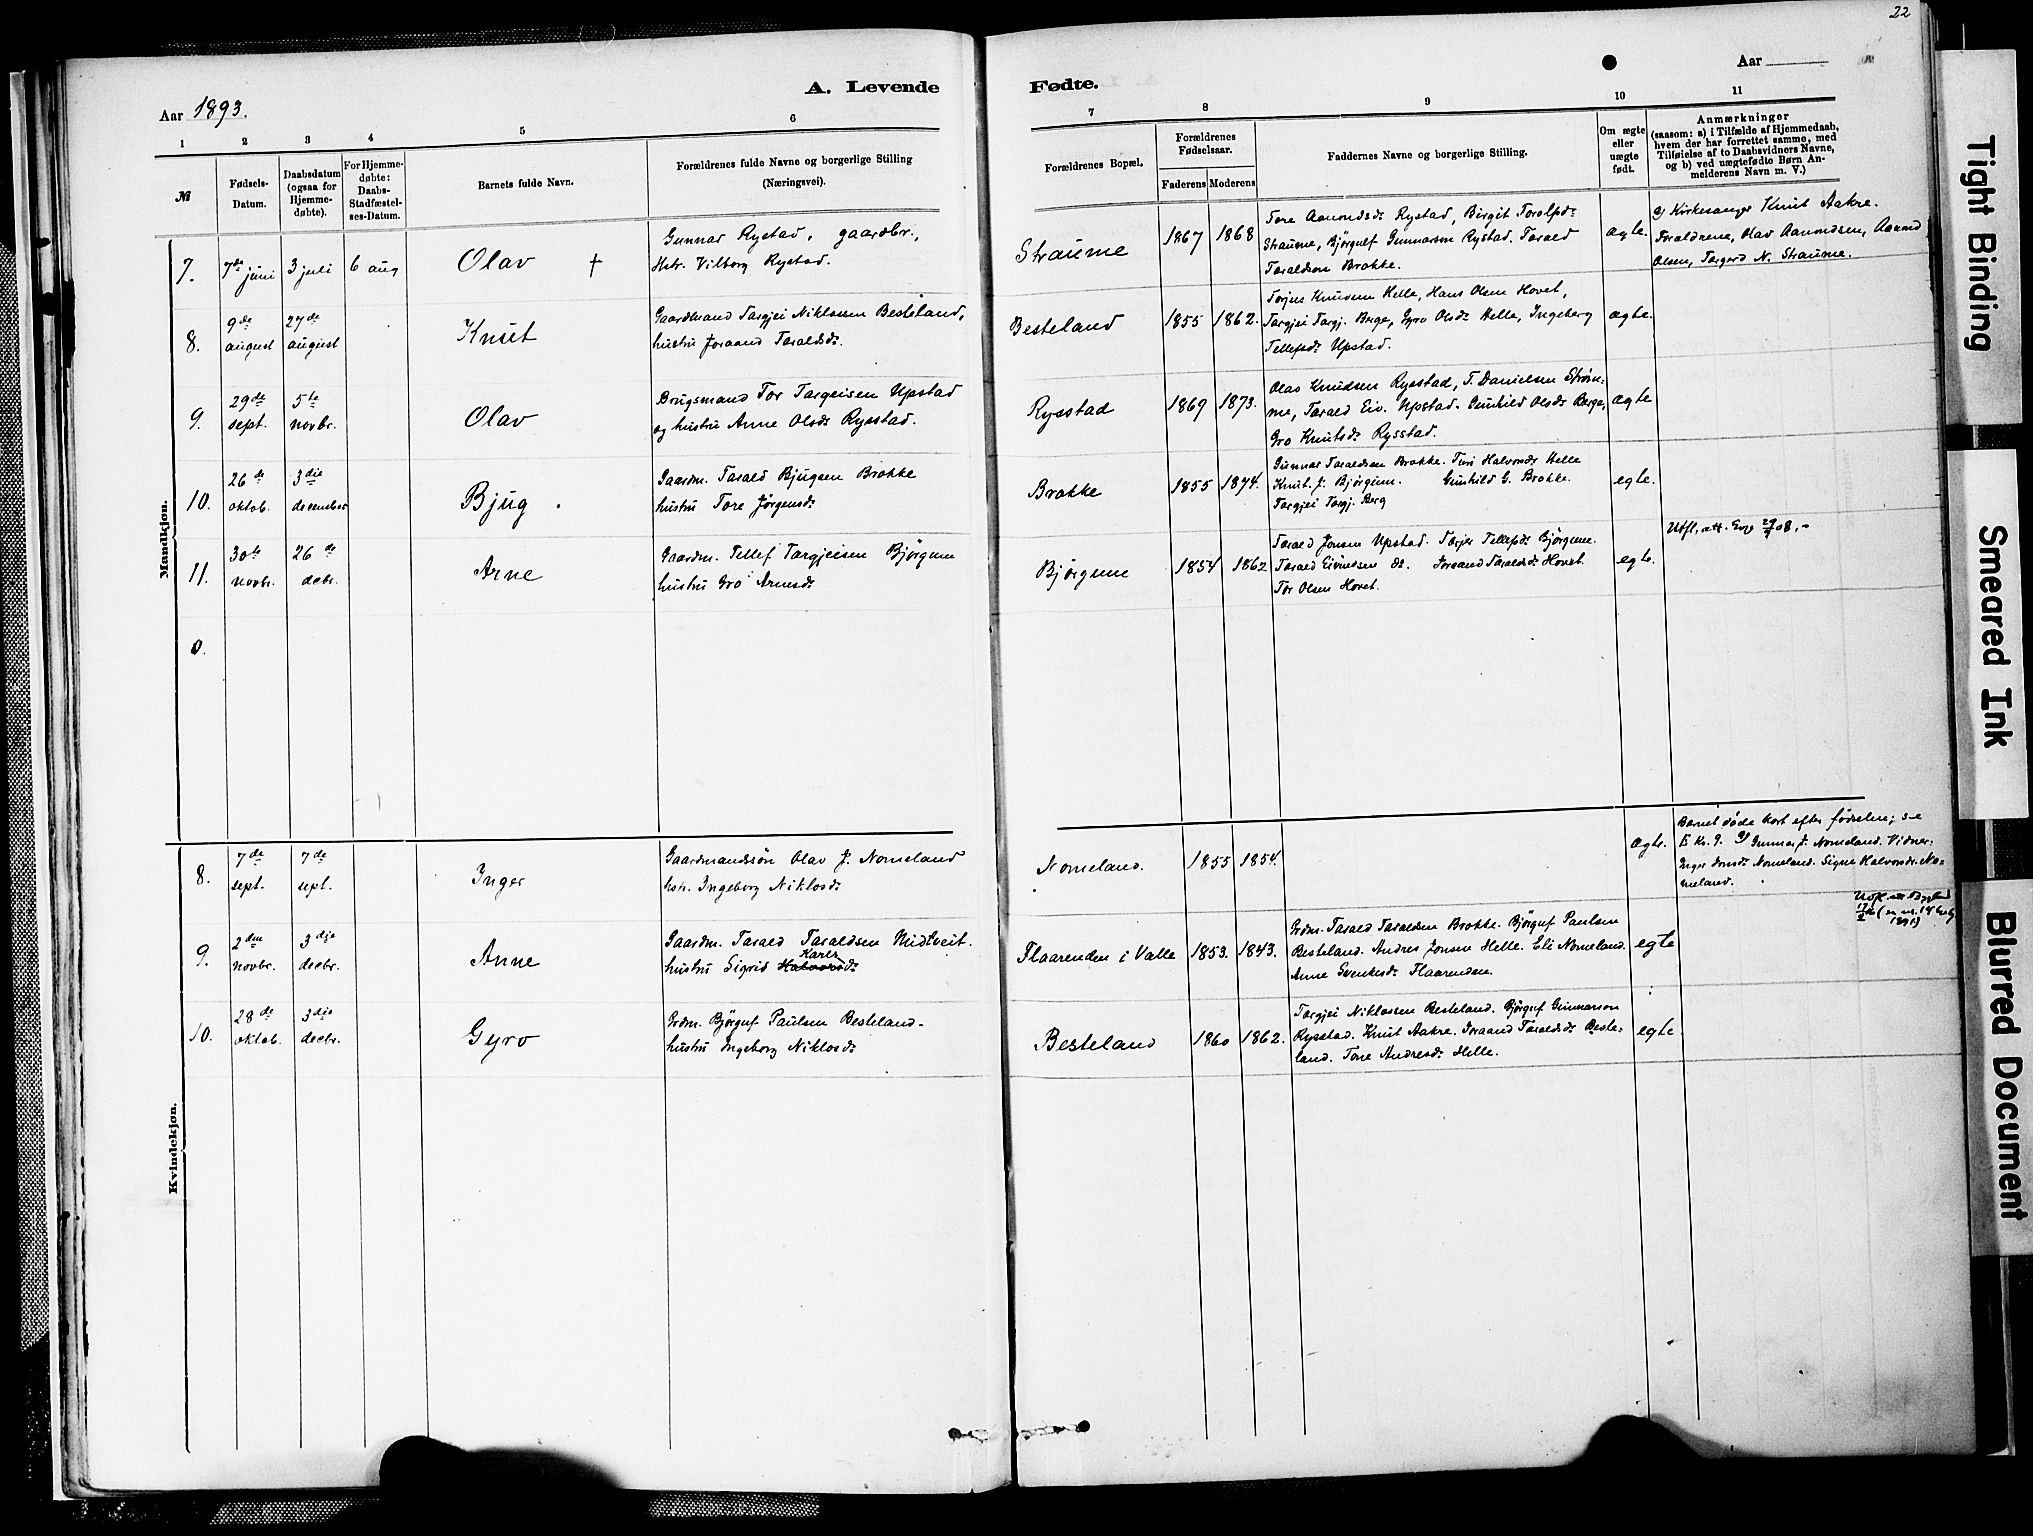 22
Aar 1893.
A. Levende
Fødte.
Aar
1 2 3 4 5 6
7 8 9 10 11
№
Fødsels-
Datum.
Daabsdatum
(ogsaa for
Hjemme-
døbte).
For Hjemme-
døbte:
Daabs-
Stadfæstel-
ses-Datum.
Barnets fulde Navn.
Forældrenes fulde Navne og borgerlige Stilling
(Næringsvei).
Forældrenes Bopæl.
Forældrenes
Fødselsaar.
Faderens Moderens
Faddernes Navne og borgerlige Stilling.
Om ægte
eller
uægte
født.
Anmærkninger
(saasom: a) i Tilfælde af Hjemmedaab,
hvem der har forrettet samme, med
Tilføielse af to Daabsvidners Navne,
og b) ved uægtefødte Børn An-
melderens Navn m. V.)
Mandkjøn.
7.
7de juni
3 juli
6 aug
Olav †
Gunnar Rystad, gaardbr.,
Hstr. Vilborg Rystad.
Straume
1867 1868
Tore Aanondsdr Rystad, Birgit Torolfsdr
Straume, Bjørgulf Gunnarson Rystad. Tarald
Taraldson Brokke.
ægte.
Kirkesanger Knut Aakre.
Foraldrene, Olav Aanondsen, Aanund
Olsen, Torgerd N. Straume.
8.
9de
august
27de
august
Knut
Gaardmand Targjei Niklossen Besteland,
hustru Joraand Taraldsdr.
Besteland
1855 1862.
Torjus Knudsen Helle, Hans Olsen Hovet,
Targjei Targj. Berge, Gyro Olsdr Helle, Ingeborg
Tellefsdr Upstad.
ægte.
9.
29de
sept.
5te
novbr.
Olav
Brugsmand Tor Targeisen Upstad
og hustru Anne Olsdr Rysstad.
Rysstad
1869 1873.
Olav Knudsen Rysstad, T. Danielsen Strøm-
me, Tarald Eiv. Upstad. Gunhild Olsdr Berge,
Gro Knutsdr Rysstad.
ægte
10.
26de
oktob.
3die
december
Bjug
Gaardm. Tarald Bjugsen Brokke
hustru Tore Jørgensdr
Brokke
1855 1874.
Gunnar Taraldsen Brokke. Turi Halvorsdr Helle
Knut J. Bjørgum. Gunhild G. Brokke.
Targjei Torgj. Berg
egte.
11.
30te
novbr.
26de
debr.
Arne
Gaardm. Tellef Targjeisen Bjørgum
hustru Gro Arnesdr
Bjørgum
1854 1862
Tarald Jonsen Upstad. Torjer Tellefsdr Bjørgum.
Tarald Eivindsen ds. Jorand Taraldsdr Hovet.
Tor Olsen Hovet.
egte.
Utfl. att. 08.
0.
Kvindekjøn.
8.
7de
sept.
7de
sept.
Inger
Gaardmandssøn Olav J. Nomeland
hstr. Ingeborg Niklosdr
Nomeland.
1855 1854.
Ægte.
Barnet døde kort efter fødselen; se
Gunnar J. Nomeland. Vidner:
Inger Nomeland. Signe Halvorsdr No-
meland.
9.
2den
novbr.
3die
decbr.
Anne
Gaardm. Tarald Taraldsen Midtveit.
Karls
hustru Sigrid Halvorsdr
Flaarenden i Valle
1853. 1843.
Grdm. Tarald Taraldsen Brokke. Bjørgulf Paulsen
Besteland. Andres Jonsen Helle. Eli Nomeland.
Anne Svenkesdr Flaarenden.
egte
Utfl. att. Bygland
1891)
10.
28de
oktob.
3die
decbr.
Gyro
Grdm. Bjørgulf Paulsen Besteland-
hustru Ingeborg Niklosdr
Besteland
1860 1862.
Targjei Niklossen Besteland. Bjørgulf Gunnarson
Rysstad. Knut Aakre. Joraand Taraldsdr Beste-
land. Tone Andresdr Helle.
egte.
Tight Binding
Smeared Ink
Blured Document